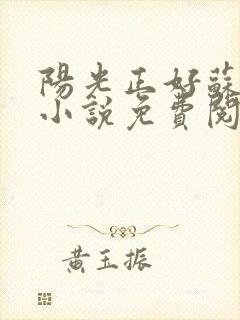 陽光正好蘇
小說免費閱
黃玉振